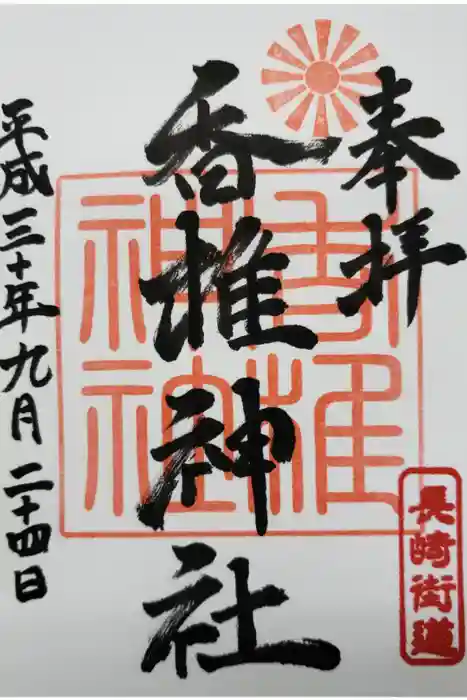 奉拝
香椎神社
香椎神社
長崎街道
平成三十年九月二十四日